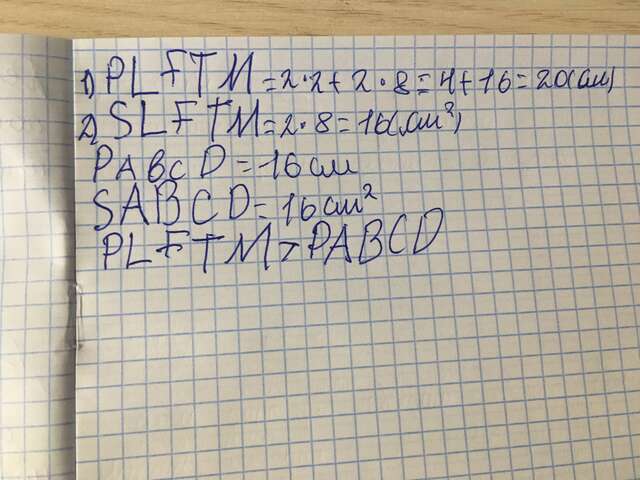 1) PLFTM = 2·2+2·8=4+16=20(см)
2) SLFTM=2·8=16(см²)
PABCD=16см
SABCD=16см²
PLFTM>PABCD